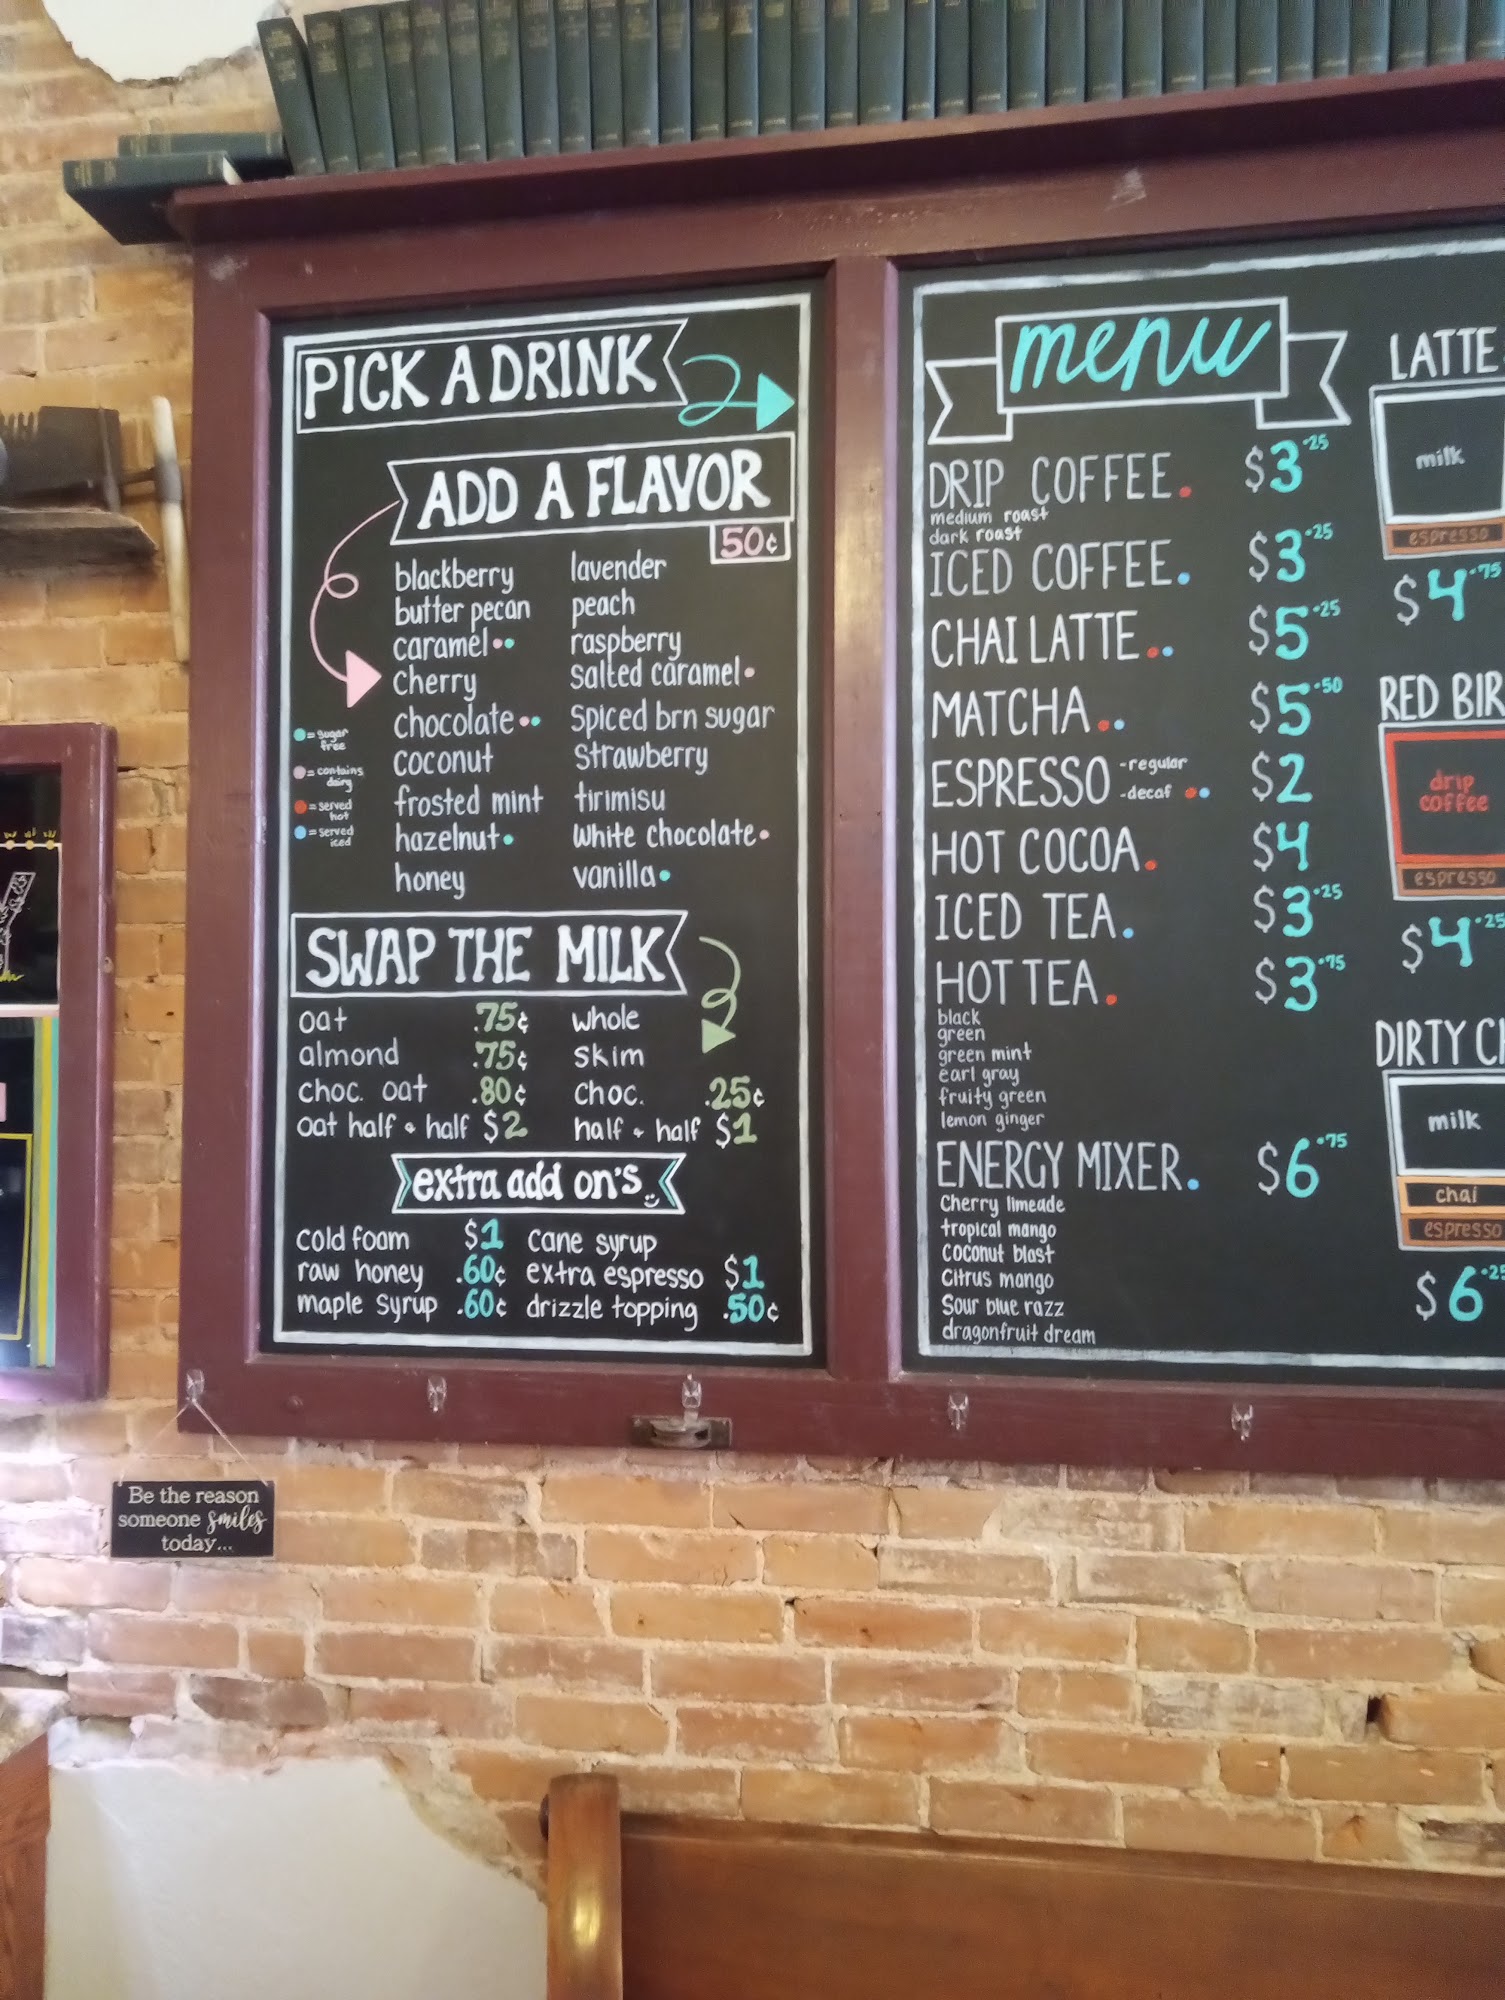 PICK A DRINK
ADD A FLAVOR
50¢
blackberry
butter pecan
caramel
cherry
chocolate
coconut
frosted mint
hazelnut
honey
lavender
peach
raspberry
salted caramel
spiced brn sugar
strawberry
tirimisu
white chocolate
vanilla
= sugar free
= contains dairy
= served hot
= served iced
SWAP THE MILK
oat .75¢
almond .75¢
choc. oat .80¢
oat half + half $2
whole
skim
choc. .25¢
half + half $1
extra add on's
cold foam $1
raw honey .60¢
maple syrup .60¢
cane syrup
extra espresso $1
drizzle topping .50¢
menu
DRIP COFFEE $3.25
medium roast
dark roast
ICED COFFEE $3.25
CHAI LATTE $5.25
MATCHA $5.50
ESPRESSO -regular -decaf $2
HOT COCOA $4
ICED TEA $3.25
HOT TEA $3.75
black
green
green mint
earl gray
fruity green
lemon ginger
ENERGY MIXER $6.75
Cherry limeade
tropical mango
coconut blast
Citrus mango
Sour blue razz
dragonfruit dream
LATTE
milk
espresso
$4.75
RED BIR
drip
coffee
espresso
$4.25
DIRTY CH
milk
chai
espresso
$6.25
Be the reason
someone smiles
today...